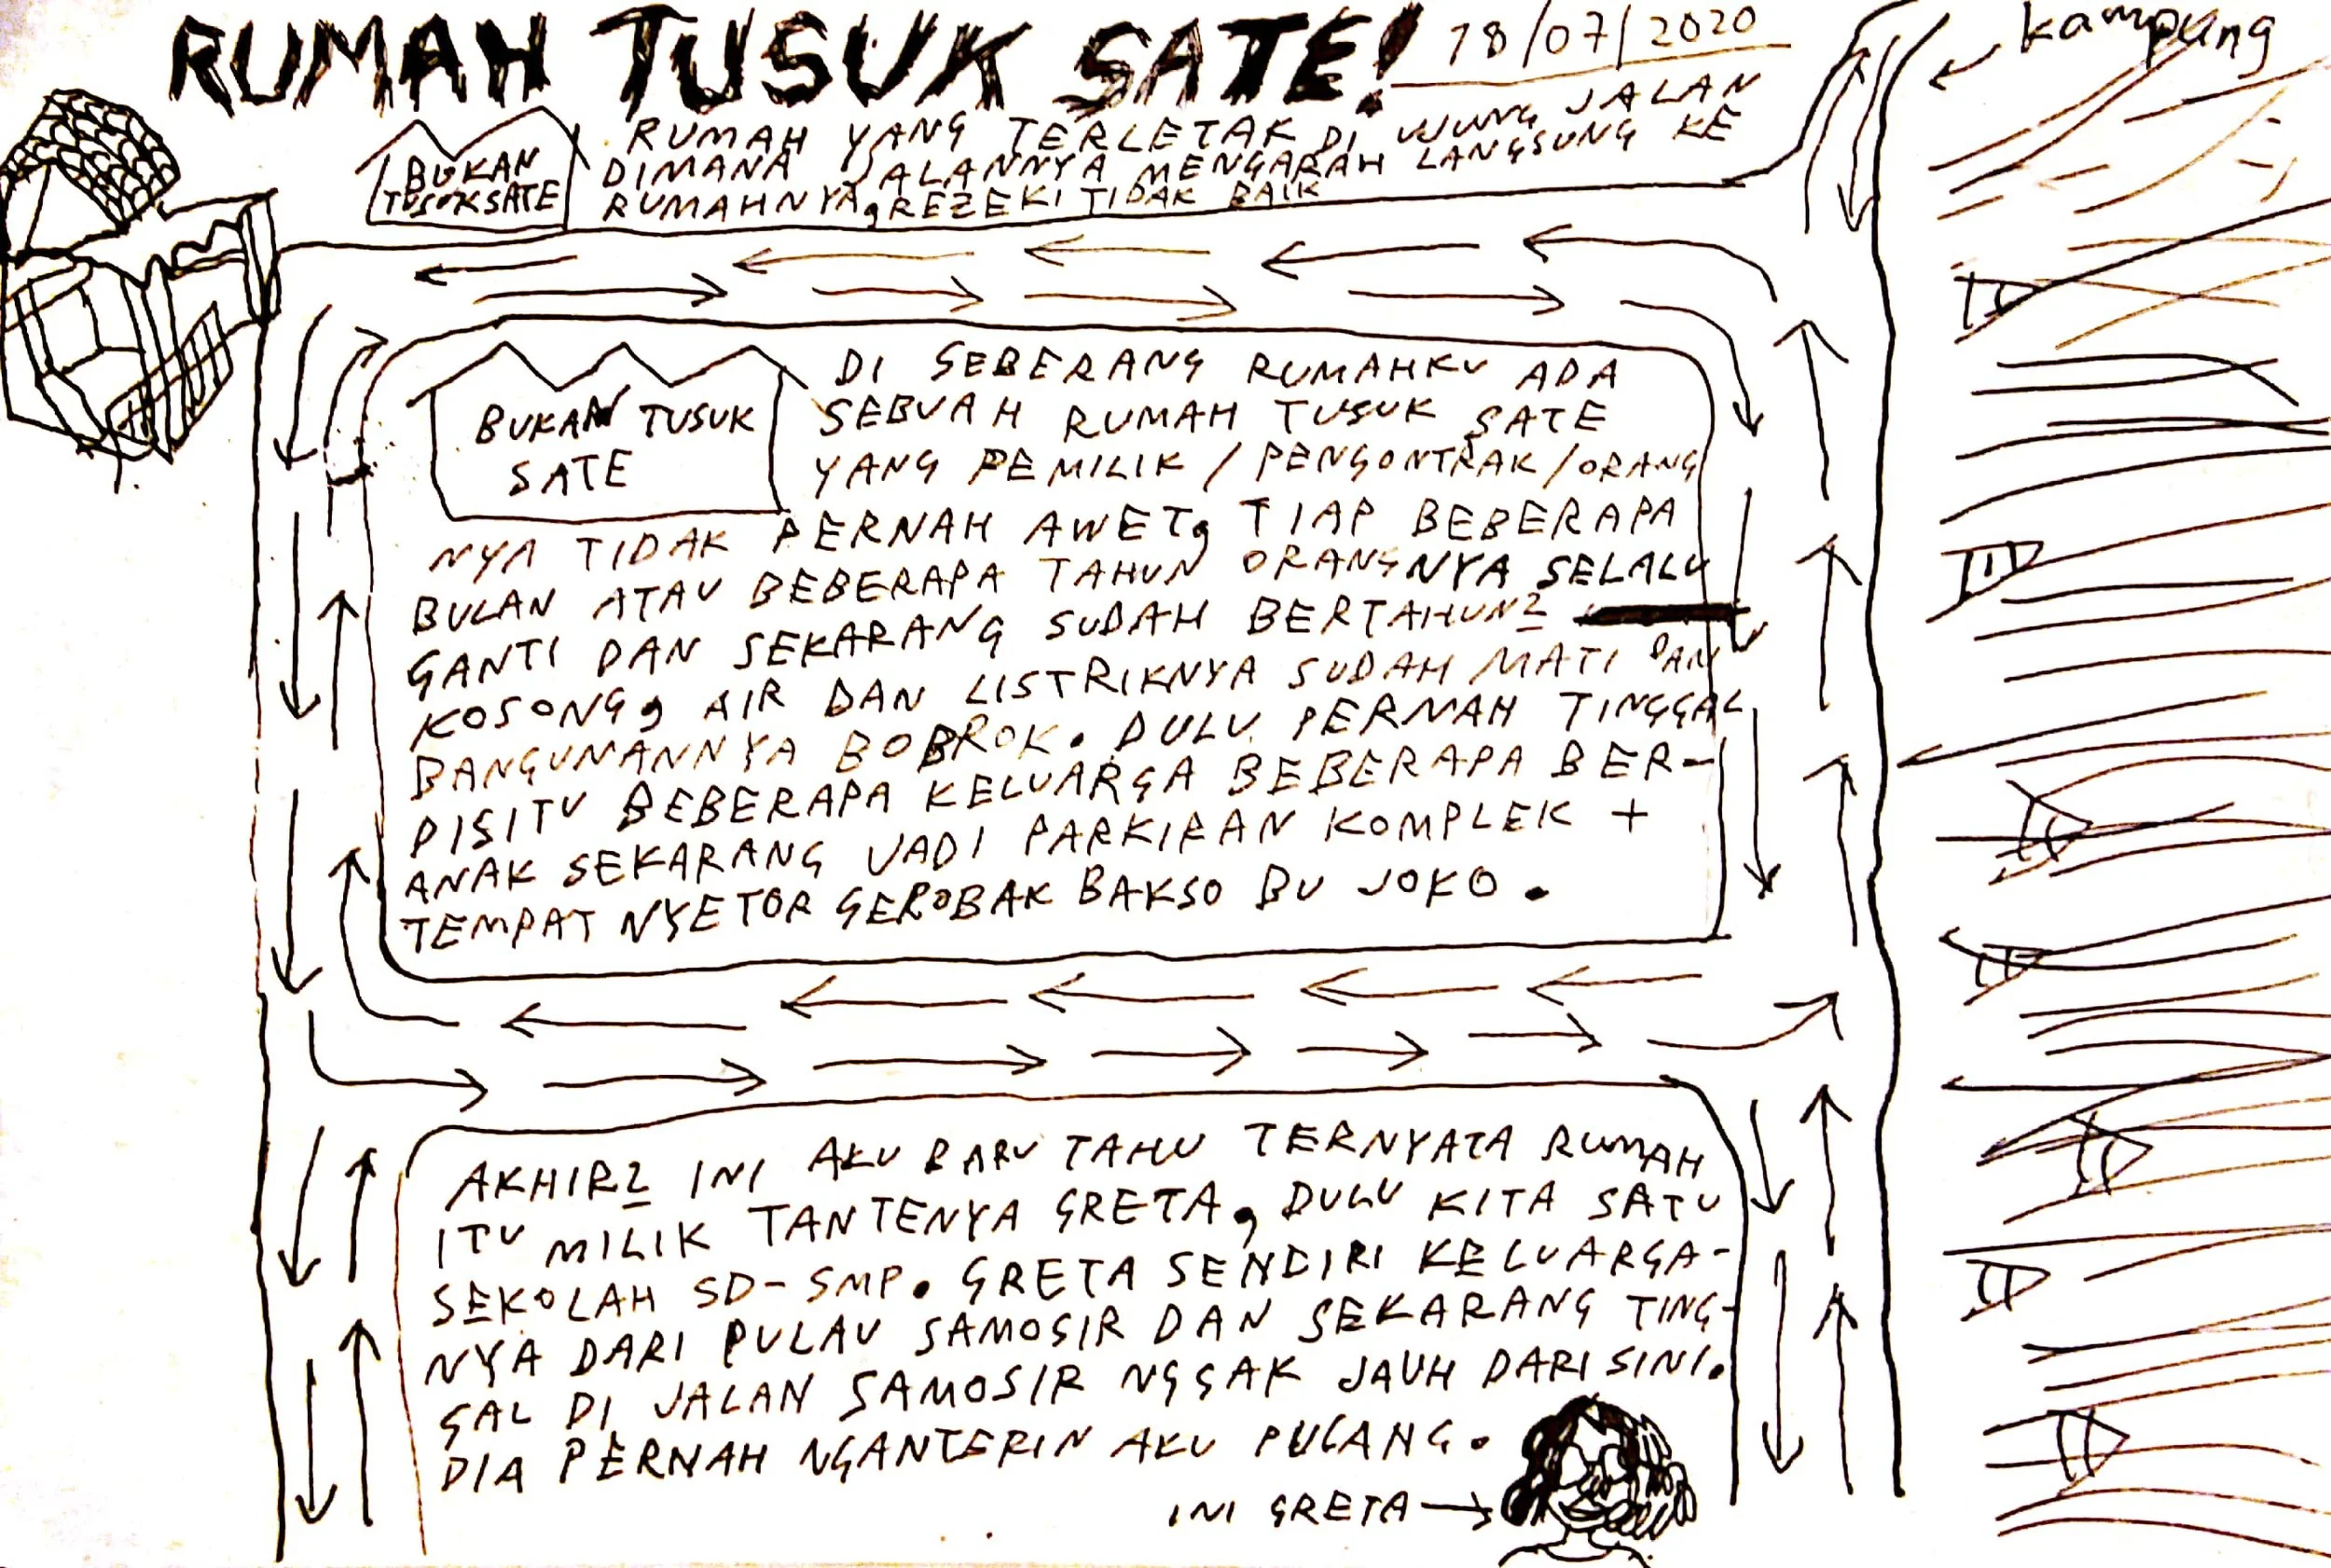 RUMAH TUSUK SATE!
18/07/2020
kampung
BUKAN
TUSUK SATE
RUMAH YANG TERLETAK DI UJUNG JALAN
DIMANA JALANNYA MENGARAH LANGSUNG KE
RUMAHNYA, REZEKI TIDAK BAIK
BUKAN TUSUK
SATE
DI SEBERANG RUMAHKU ADA
SEBUAH RUMAH TUSUK SATE
YANG PEMILIK / PENGONTRAK / ORANG
NYA TIDAK PERNAH AWET, TIAP BEBERAPA
BULAN ATAU BEBERAPA TAHUN ORANGNYA SELALU
GANTI DAN SEKARANG SUDAH BERTAHUN2
KOSONG, AIR DAN LISTRIKNYA SUDAH MATI DAN
BANGUNANNYA BOBROK. DULU PERNAH TINGGAL
DISITU BEBERAPA KELUARGA BEBERAPA BER-
ANAK SEKARANG JADI PARKIRAN KOMPLEK +
TEMPAT NYETOR GEROBAK BAKSO BU JOKO.
AKHIR2 INI AKU BARU TAHU TERNYATA RUMAH
ITU MILIK TANTENYA GRETA, DULU KITA SATU
SEKOLAH SD-SMP. GRETA SENDIRI KELUARGA-
NYA DARI PULAU SAMOSIR DAN SEKARANG TING-
GAL DI JALAN SAMOSIR NGGAK JAUH DARI SINI.
DIA PERNAH NGANTERIN AKU PULANG.
INI GRETA